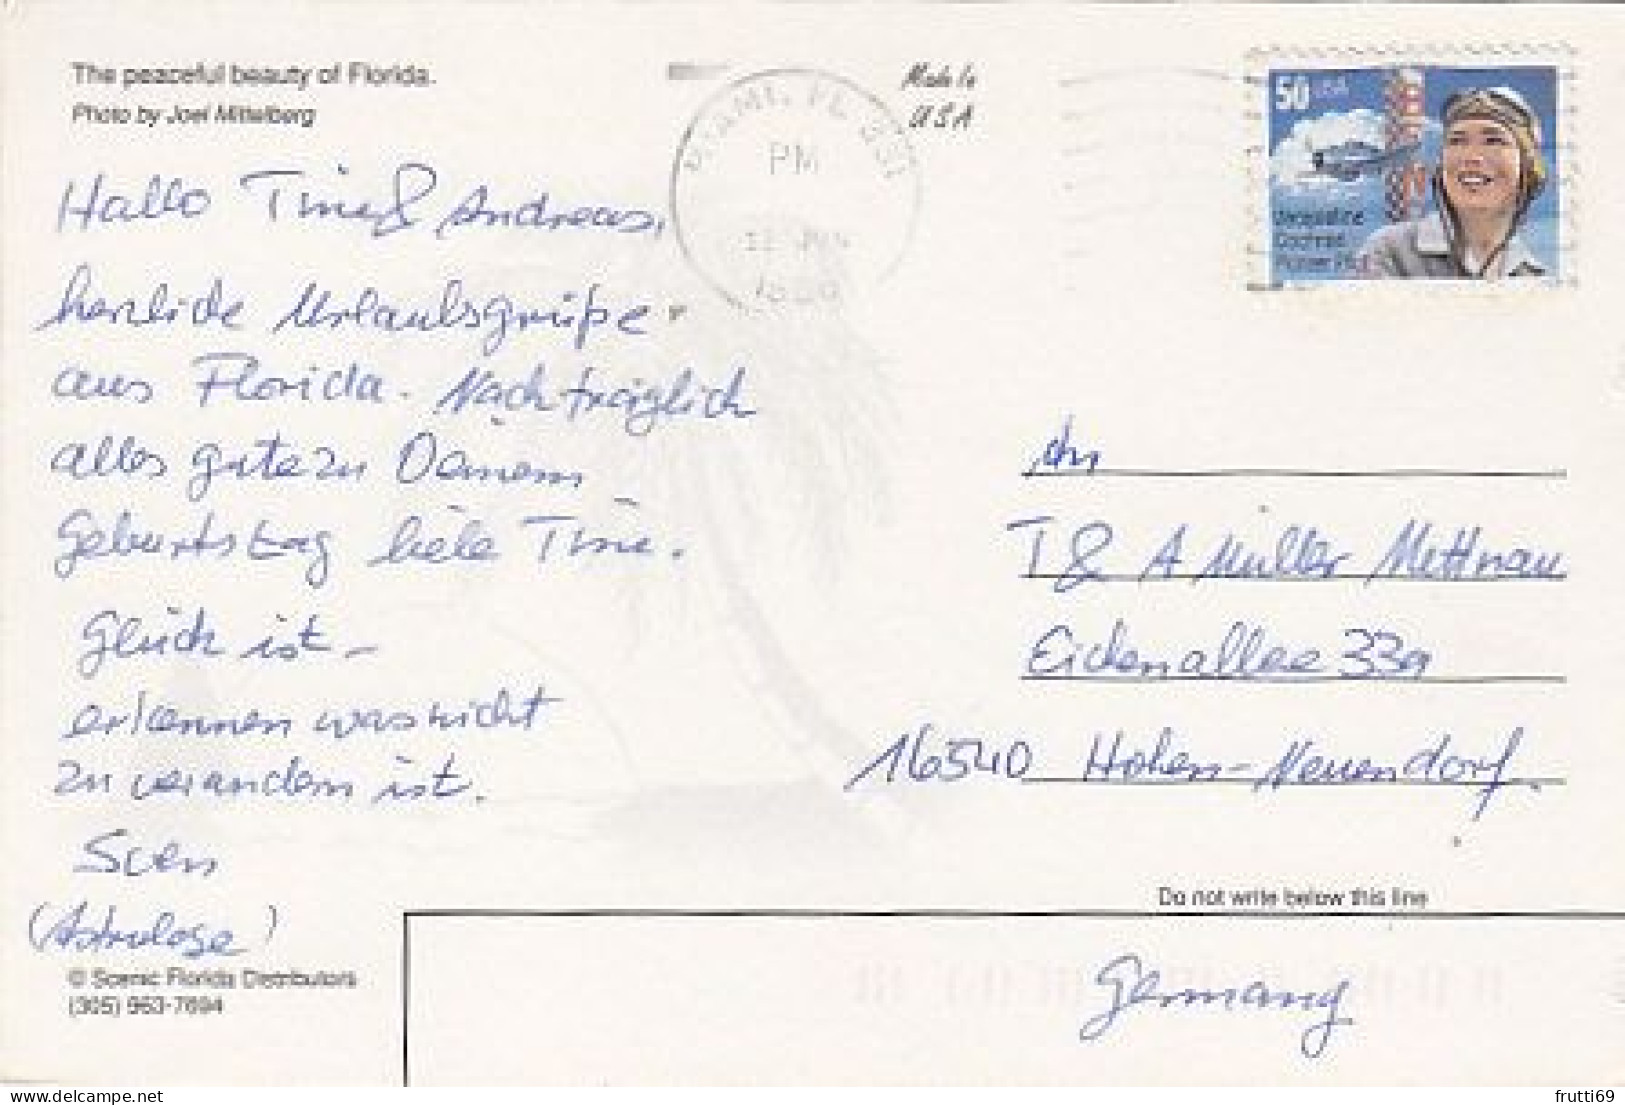 The peaceful beauty of Florida.
Photo by Joel Mittelberg
Made In
USA
MIAMI, FL
PM
50 USA
Jacqueline
Cochran
Pioneer Pilot
Hallo Tine & Andreas,
herzliche Urlaubsgrüße
aus Florida. Nachträglich
alles gute zu Deinem
Geburtstag liebe Tine.
Glück ist –
erkennen was nicht
zu verändern ist.
Sven
(Astrologe)
© Scenic Florida Distributors
(305) 963-7694
An
T & A Müller Mettnau
Eichenallee 33a
16540 Hohen-Neuendorf.
Do not write below this line
Germany
frutti69